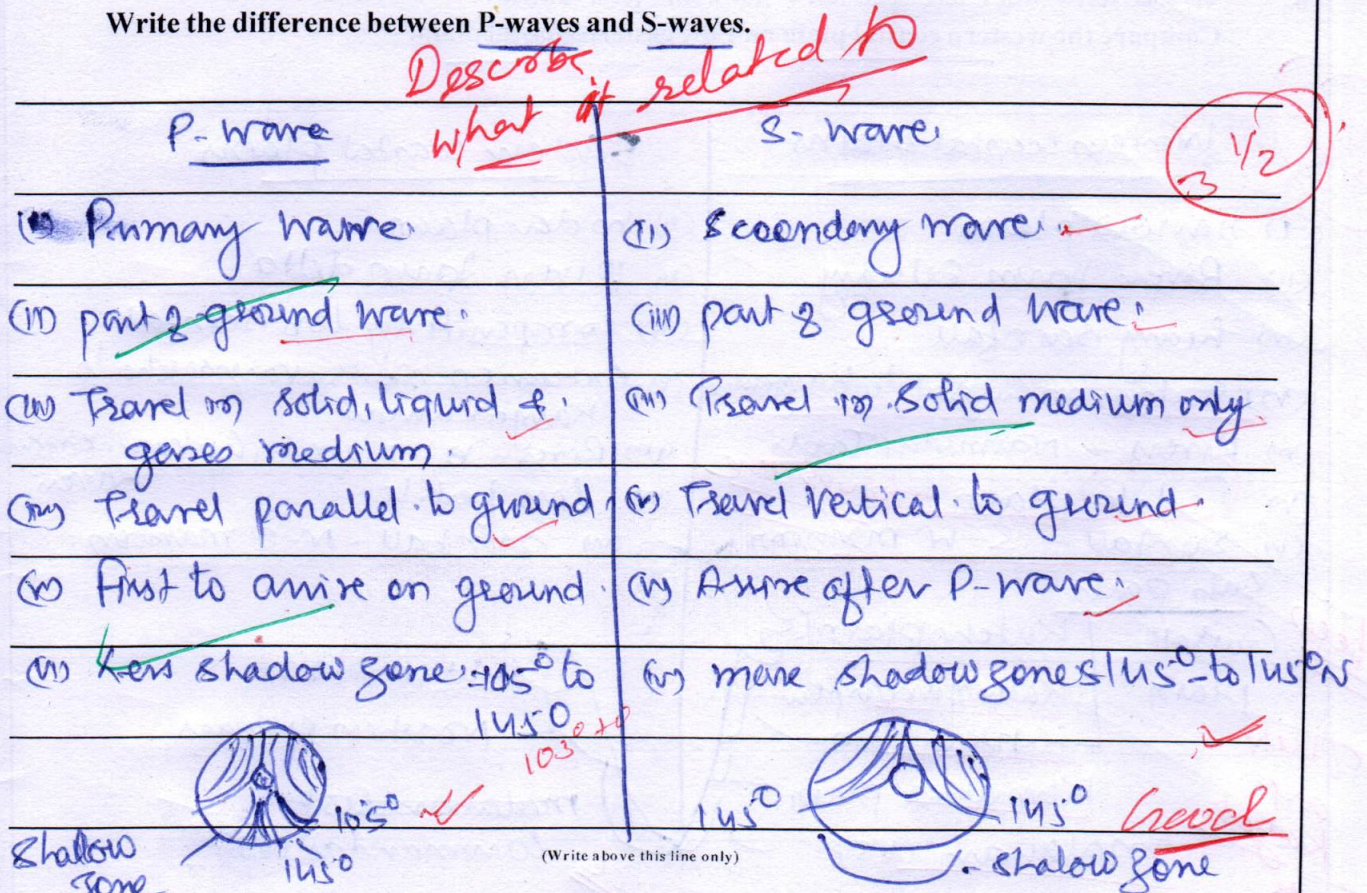 Write the difference between P-waves and S-waves.
Describe
What it related to
P-wave
S-wave
3 1/2
(i) Primary wave.
(ii) Secondary wave.
(ii) part of ground wave.
(iii) part of ground wave.
(iii) Travel in solid, liquid &
gases medium
(iii) Travel in solid medium only
(iv) Travel parallel to ground.
(iv) Travel vertical to ground.
(v) First to arrive on ground.
(v) Arrive after P-wave.
(vi) Less shadow zone 105° to
145°
(vi) more shadow zones 145° to 145°N
105°
145°
Shallow
zone
145°
145°
Good
(Write above this line only)
shalow zone